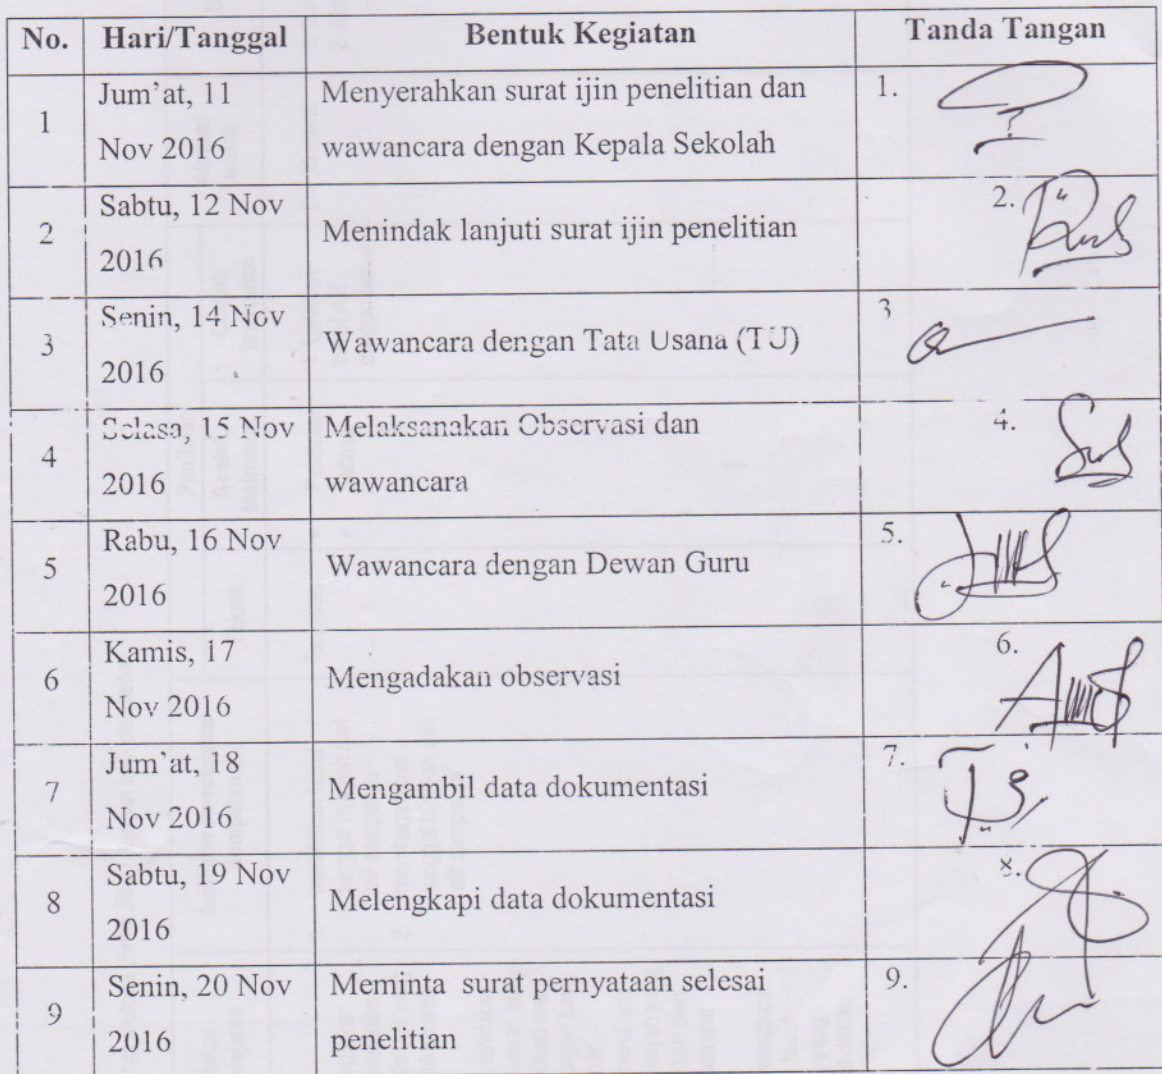 No. Hari/Tanggal Bentuk Kegiatan Tanda Tangan
1 Jum'at, 11 Nov 2016 Menyerahkan surat ijin penelitian dan wawancara dengan Kepala Sekolah 1.
2 Sabtu, 12 Nov 2016 Menindak lanjuti surat ijin penelitian 2.
3 Senin, 14 Nov 2016 Wawancara dengan Tata Usana (TU) 3
4 Selasa, 15 Nov 2016 Melaksanakan Observasi dan wawancara 4.
5 Rabu, 16 Nov 2016 Wawancara dengan Dewan Guru 5.
6 Kamis, 17 Nov 2016 Mengadakan observasi 6.
7 Jum'at, 18 Nov 2016 Mengambil data dokumentasi 7.
8 Sabtu, 19 Nov 2016 Melengkapi data dokumentasi 8.
9 Senin, 20 Nov 2016 Meminta surat pernyataan selesai penelitian 9.